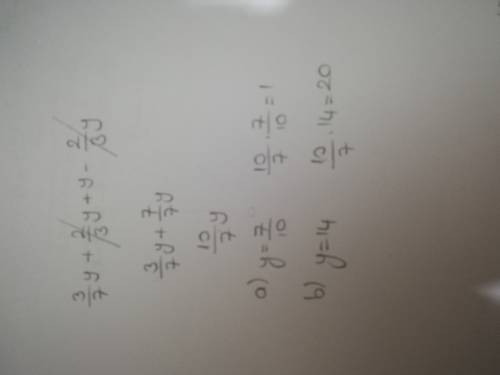 3/7 y + 2/3 y + y - 2/3 y
3/7 y + 7/7 y
10/7 y
a) y = 7/10   10/7 · 7/10 = 1
b) y = 14   10/7 · 14 = 20